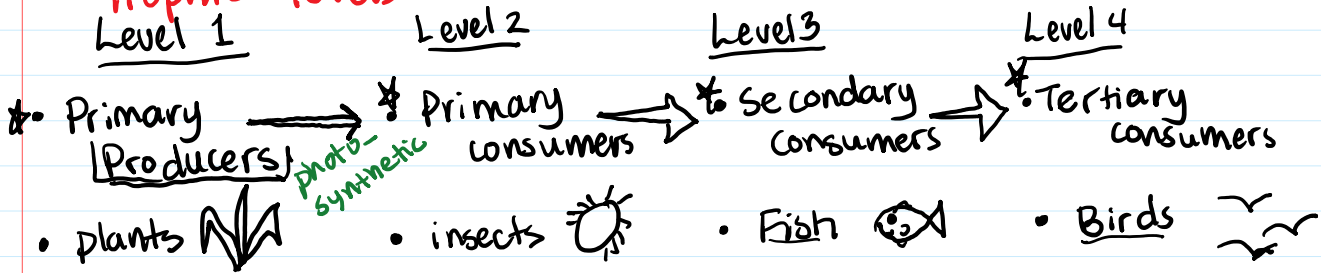 Trophic levels
Level 1 Level 2 Level 3 Level 4
Primary Producers Primary consumers Secondary consumers Tertiary consumers
photo-
synthetic
plants insects Fish Birds